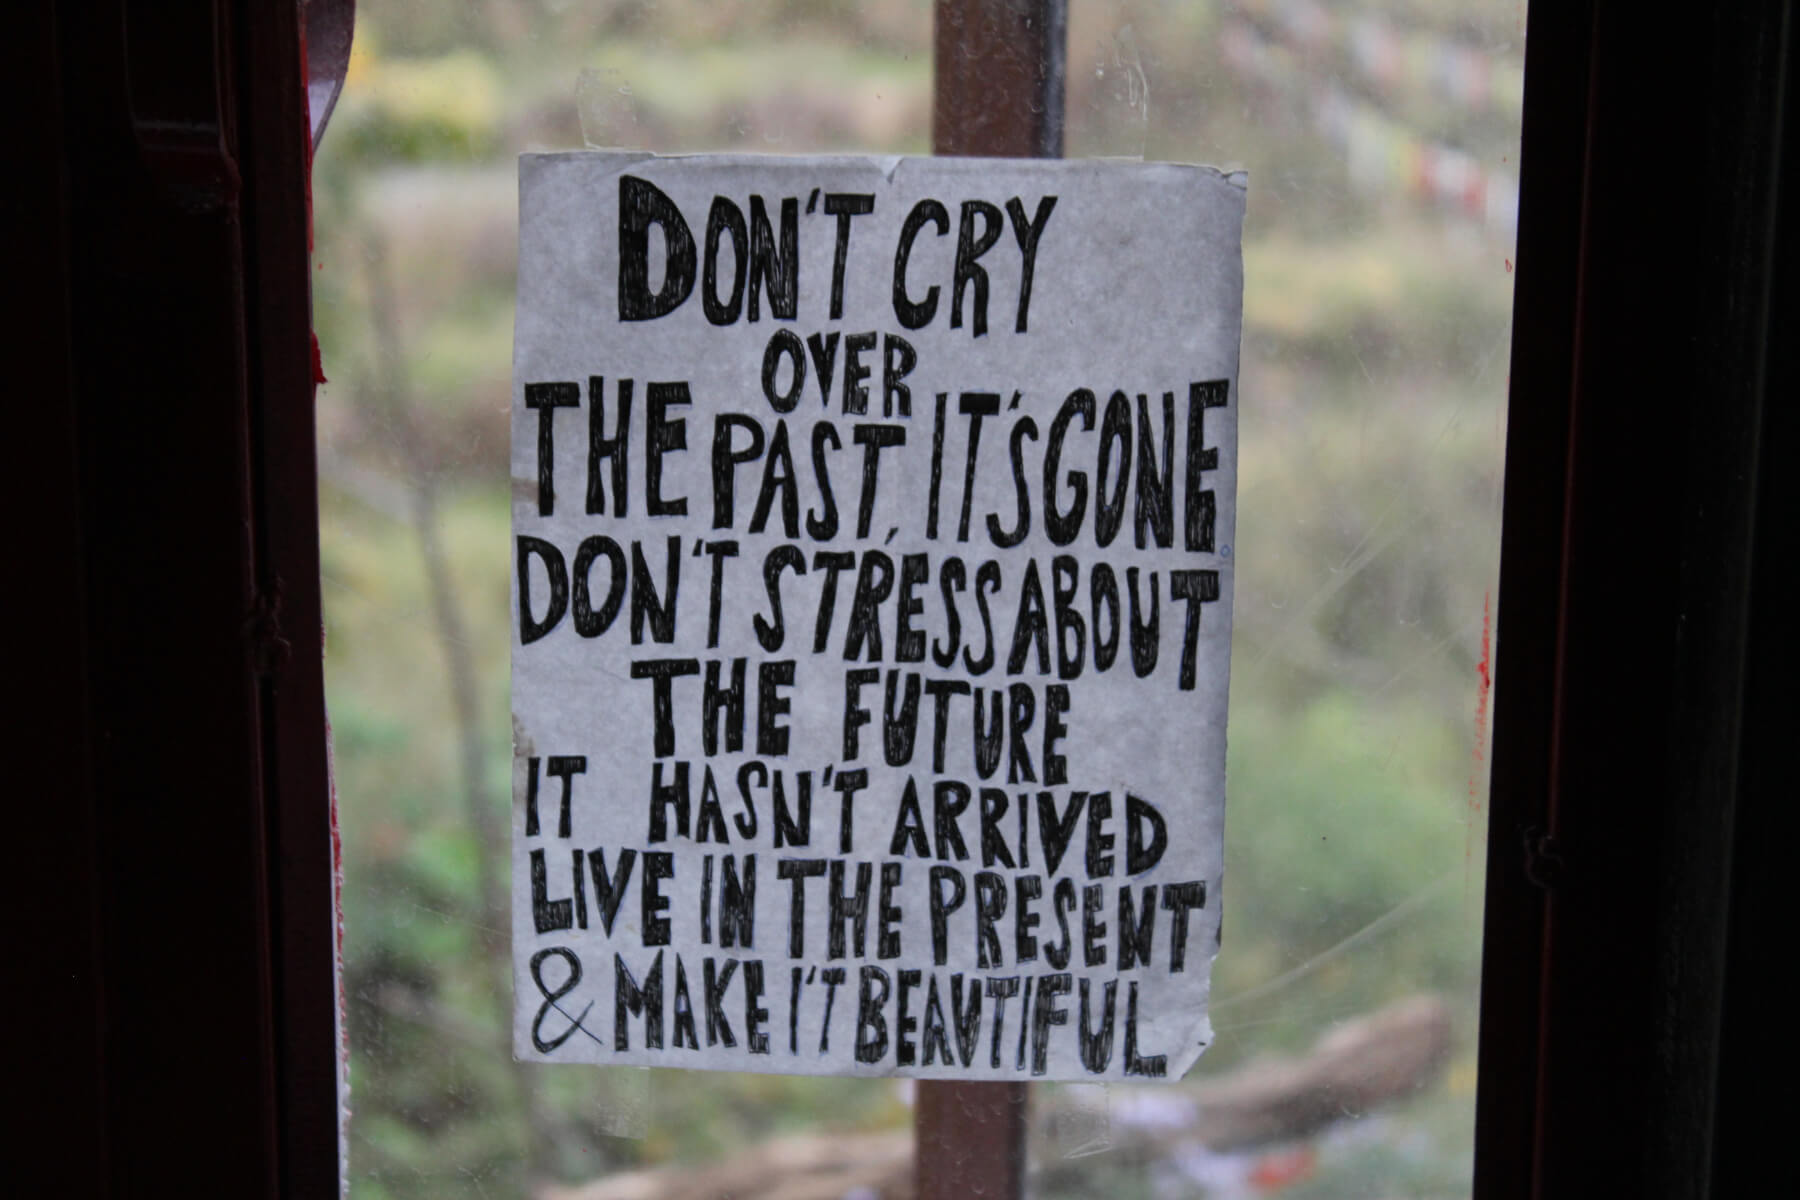 DON'T CRY
OVER
THE PAST, IT'S GONE
DON'T STRESS ABOUT
THE FUTURE
IT HASN'T ARRIVED
LIVE IN THE PRESENT
& MAKE I'T BEAUTIFUL